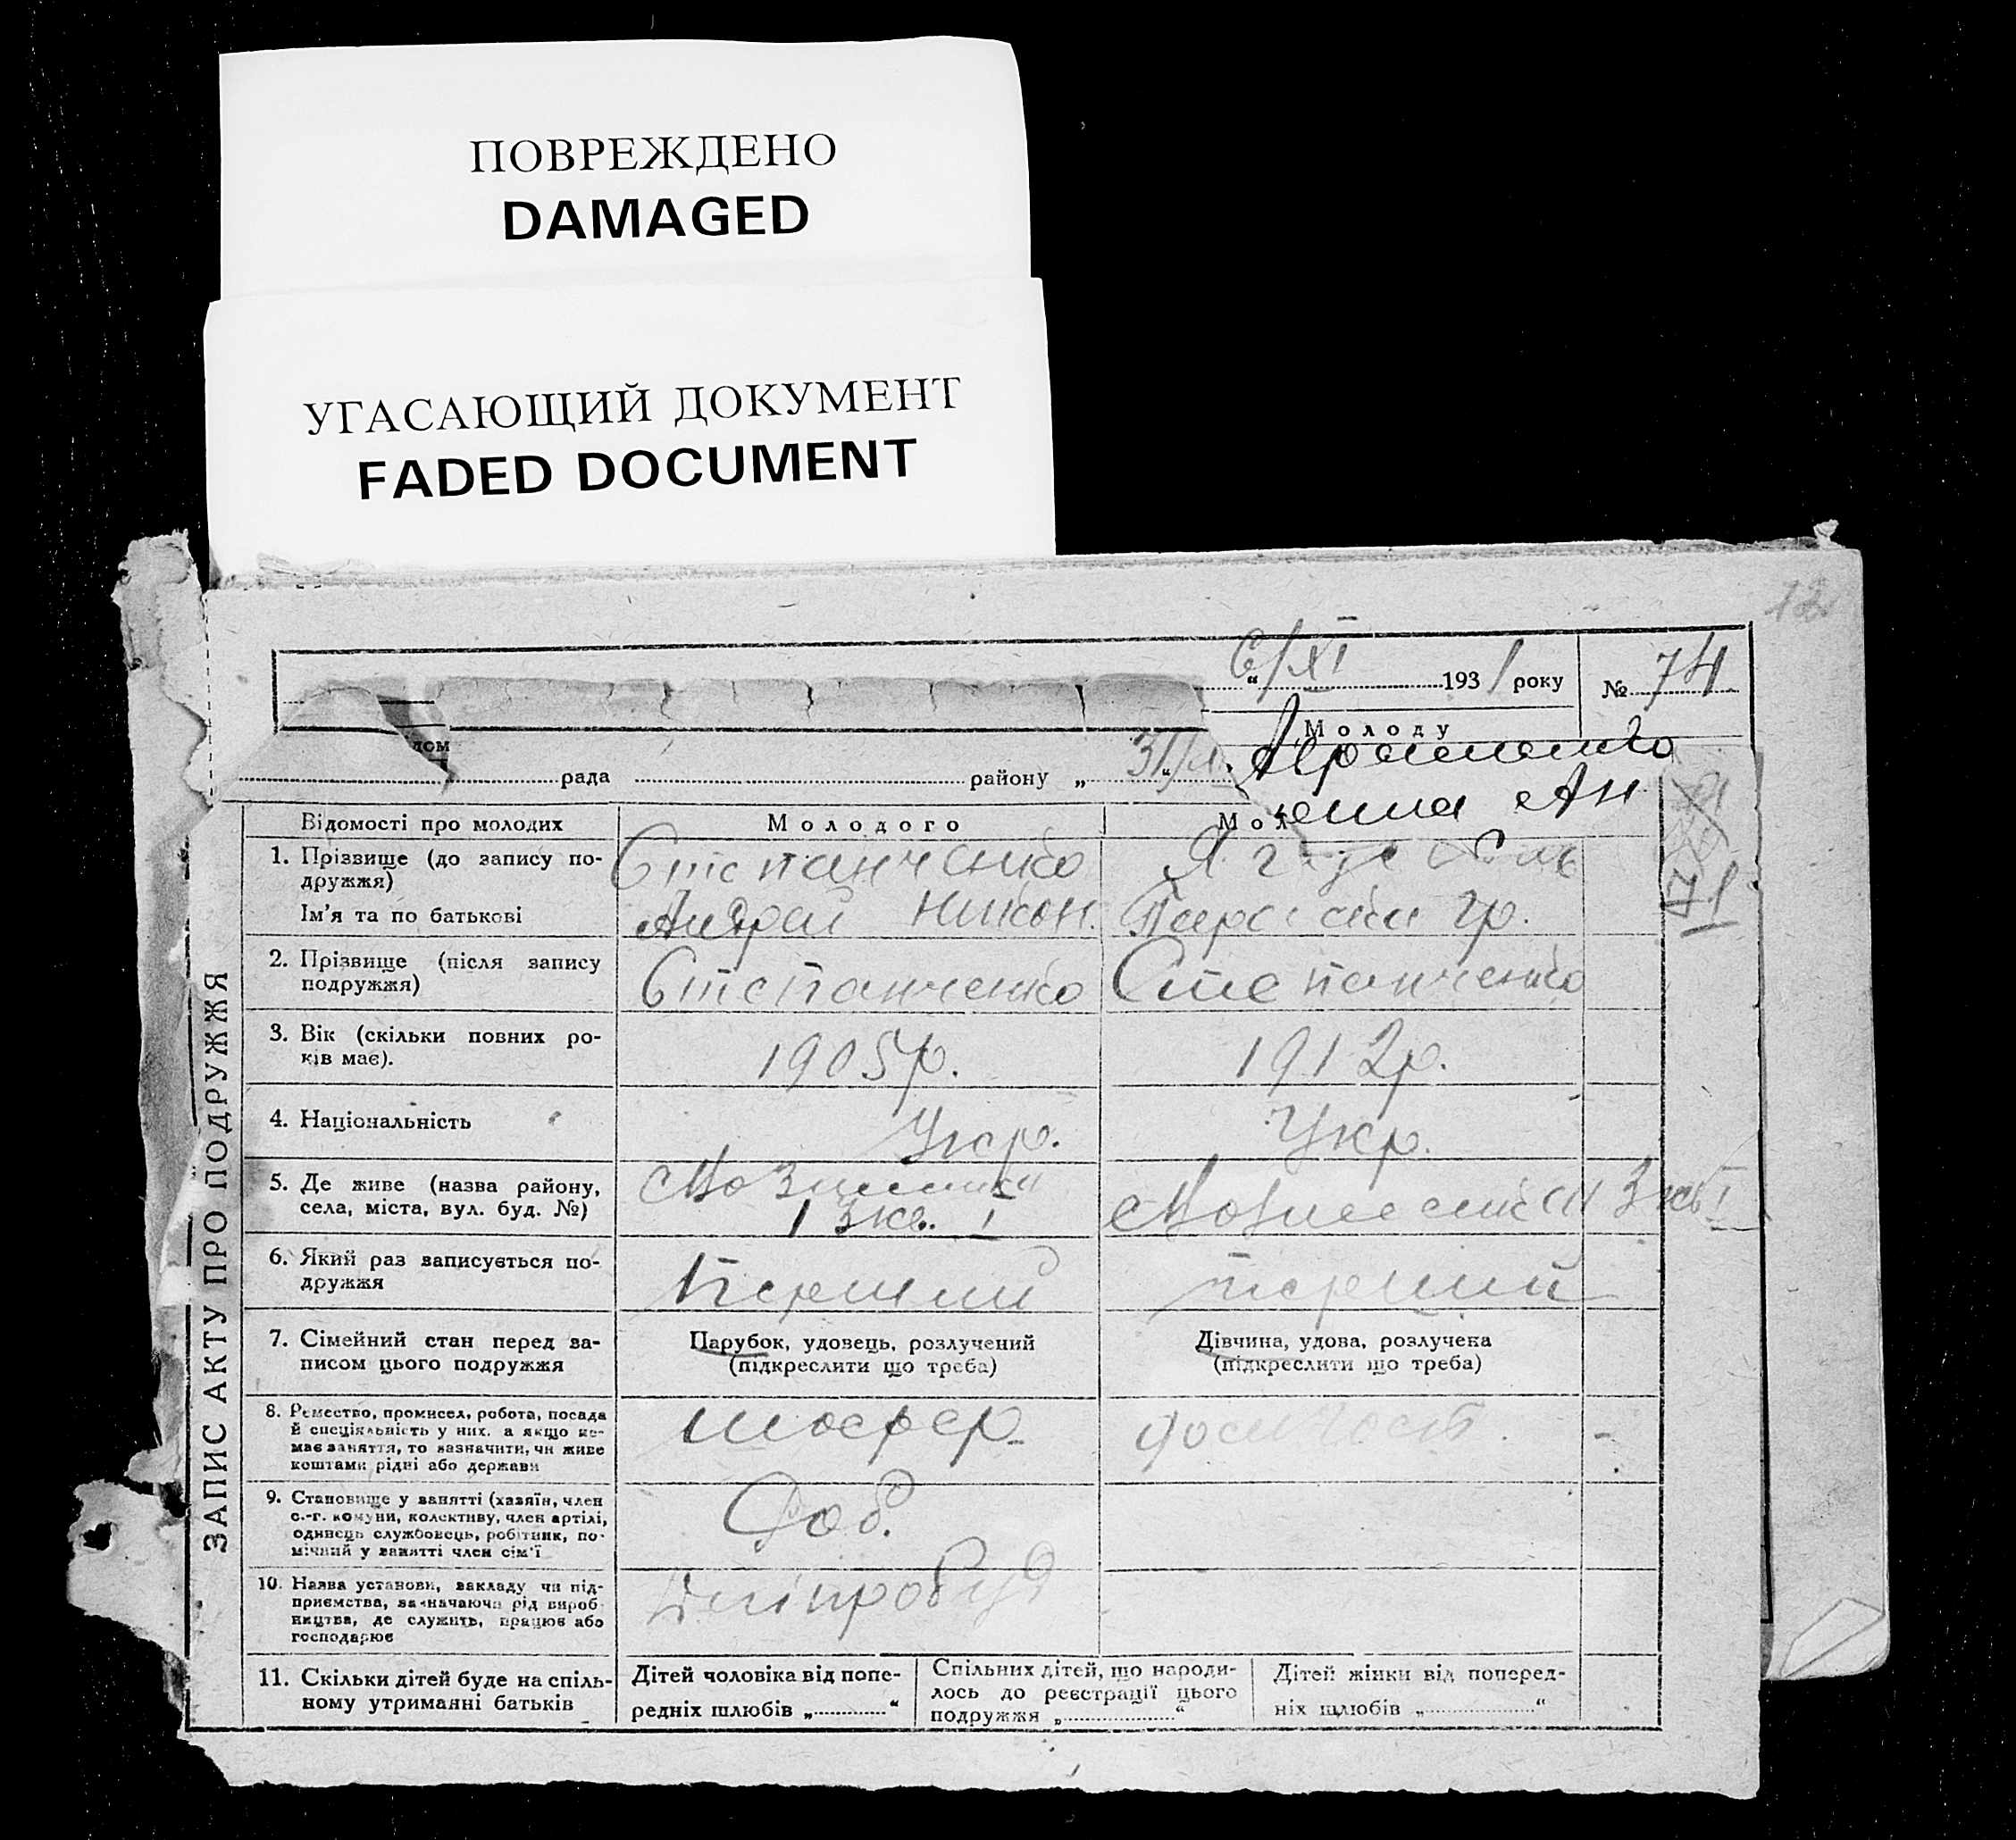 ПОВРЕЖДЕНО
DAMAGED
УГАСАЮЩИЙ ДОКУМЕНТ
FADED DOCUMENT
12
6/XI 1931 року № 74
Молоду
рада району „ 31/
Ан
ЗАПИС АКТУ ПРО ПОДРУЖЖЯ
Відомості про молодих Молодого Мол
71
1. Прізвище (до запису по-
дружжя) Степанченко
Ім'я та по батькові Андрей Никон. гр.
2. Прізвище (після запису
подружжя) Степанченко Степанченко
3. Вік (скільки повних ро-
ків має). 1905р. 1912р.
4. Національність Укр. Укр.
5. Де живе (назва району,
села, міста, вул. буд. №)
6. Який раз записується по-
дружжя Перший перший
7. Сімейний стан перед за-
писом цього подружжя
Парубок, удовець, розлучений
(підкреслити що треба)
Дівчина, удова, розлучена
(підкреслити що треба)
8. Ремество, промисел, робота, посада
й спеціяльність у них, а якщо не-
має заняття, то зазначити, чи живе
коштами рідні або держави
шофер домгосп.
9. Становище у занятті (хазяїн, член
с.-г. комуни, колективу, член артілі,
одинець службовець, робітник, по-
мічний у занятті член сім'ї
Роб.
10. Назва установи, закладу чи під-
приємства, зазначаючи рід вироб-
ництва, де служить, працює або
господарює
Дніпробуд
11. Скільки дітей буде на спіль-
ному утриманні батьків
Дітей чоловіка від попе-
редніх шлюбів „ “
Спільних дітей, що народи-
лось до реєстрації цього
подружжя „ “
Дітей жінки від поперед-
ніх шлюбів „ “